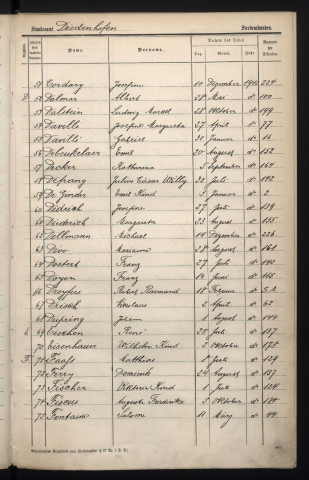 Standesamt Diedenhofen Sterberegister.
Name. Vorname. Datum des Todes Nummer der Urkunden
Tag. Monat. Jahr.
51 Cordary Josefine 10 Dezember 1910 224
D 52 Dalmar Albert 28 Mai d° 100
53 Dalstein Ludwig Marcel 28 Oktober d° 199
54 Daville Josefine Margareta 27 April d° 77
55 Davillé Gabriel 30 Januar d° 16
56 Debeukelaer Emil 30 August d° 152
57 Decker Katharina 5 September d° 164
58 Defrang Julius Cäsar Willy 30 Juli d° 142
59 De Zinder Emil Kind 3 Januar d° 2
60 Didrich Josefine 27 Juli d° 139
61 Diederich Margareta 23 August d° 155
62 Dollmann Michael 14 Dezember d° 226
63 Dior Marianne 28 August d° 161
64 Dostert Franz 27 Juli d° 140
65 Doyen Franz 14 Juni d° 115
66 Dreyfus Robert Raimund 18 Februar d° S.A.
67 Drisch Nikolaus 2 April d° 62
68 Düpring Johann 1 August d° 144
E 69 Eischen René 25 Juli d° 137
70 Eisenhauer Wilhelm Kind 2 Oktober d° 178
F 71 Faass Matthias 8 Juli d° 129
72 Ferry Dominik 24 August d° 157
73 Fischer Viktor Kind 1 Juli d° 124
74 Fiscus Auguste Frederike 5 Oktober d° 180
75 Fontaine Salome 11 März d° 44